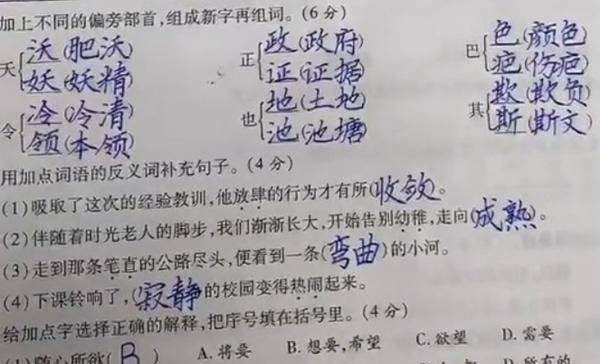 加上不同的偏旁部首,组成新字再组词。(6分)
天{沃(肥沃) 正{政(政府) 巴{色(颜色)
妖(妖精) 证(证据) 疤(伤疤)
令{冷(冷清) 也{地(土地) 其{欺(欺负)
领(本领) 池(池塘) 斯(斯文)
用加点词语的反义词补充句子。(4分)
(1)吸取了这次的经验教训,他放肆的行为才有所(收敛)。
(2)伴随着时光老人的脚步,我们渐渐长大,开始告别幼稚,走向(成熟)。
(3)走到那条笔直的公路尽头,便看到一条(弯曲)的小河。
(4)下课铃响了,(寂静)的校园变得热闹起来。
给加点字选择正确的解释,把序号填在括号里。(4分)
(1)随心所欲(B) A.将要 B.想要,希望 C.欲望 D.需要